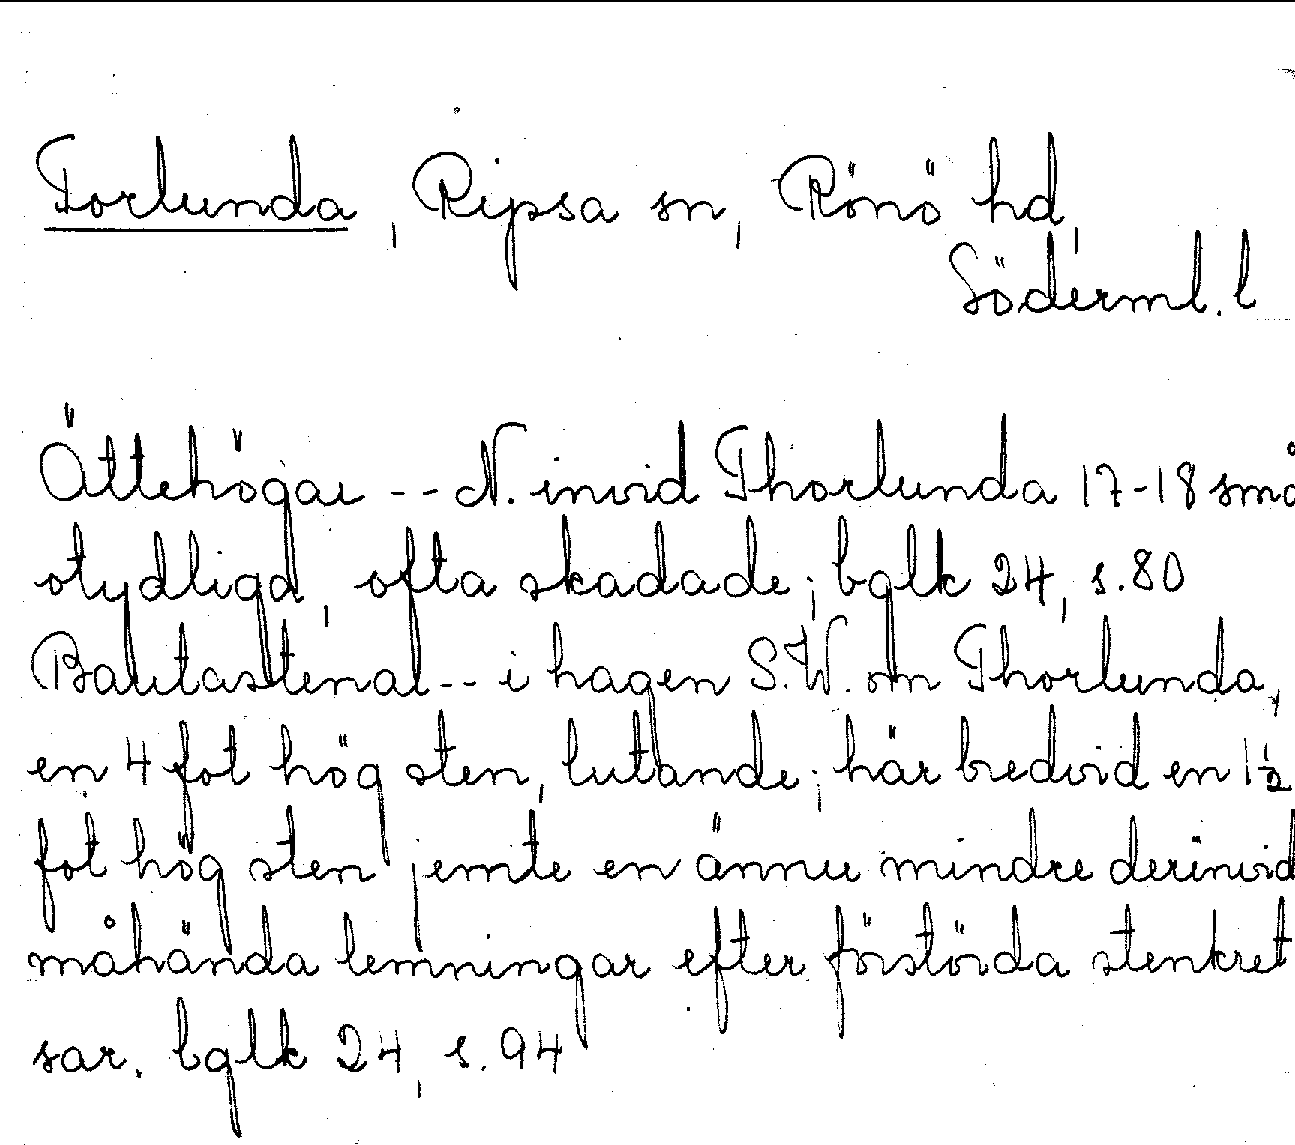 Torlunda, Ripsa sn, Rönö hd,
Söderml. l
Ättehögar -- N. invid Thorlunda 17-18 små
otydliga, ofta skadade; bglk 24, s.80
Bautastenar -- i hagen S.W. om Thorlunda,
en 4 fot hög sten, lutande; här bredvid en 1½
fot hög sten jemte en ännu mindre derinvid
måhända lemningar efter förstörda stenkret
sar. bglk 24, s.94